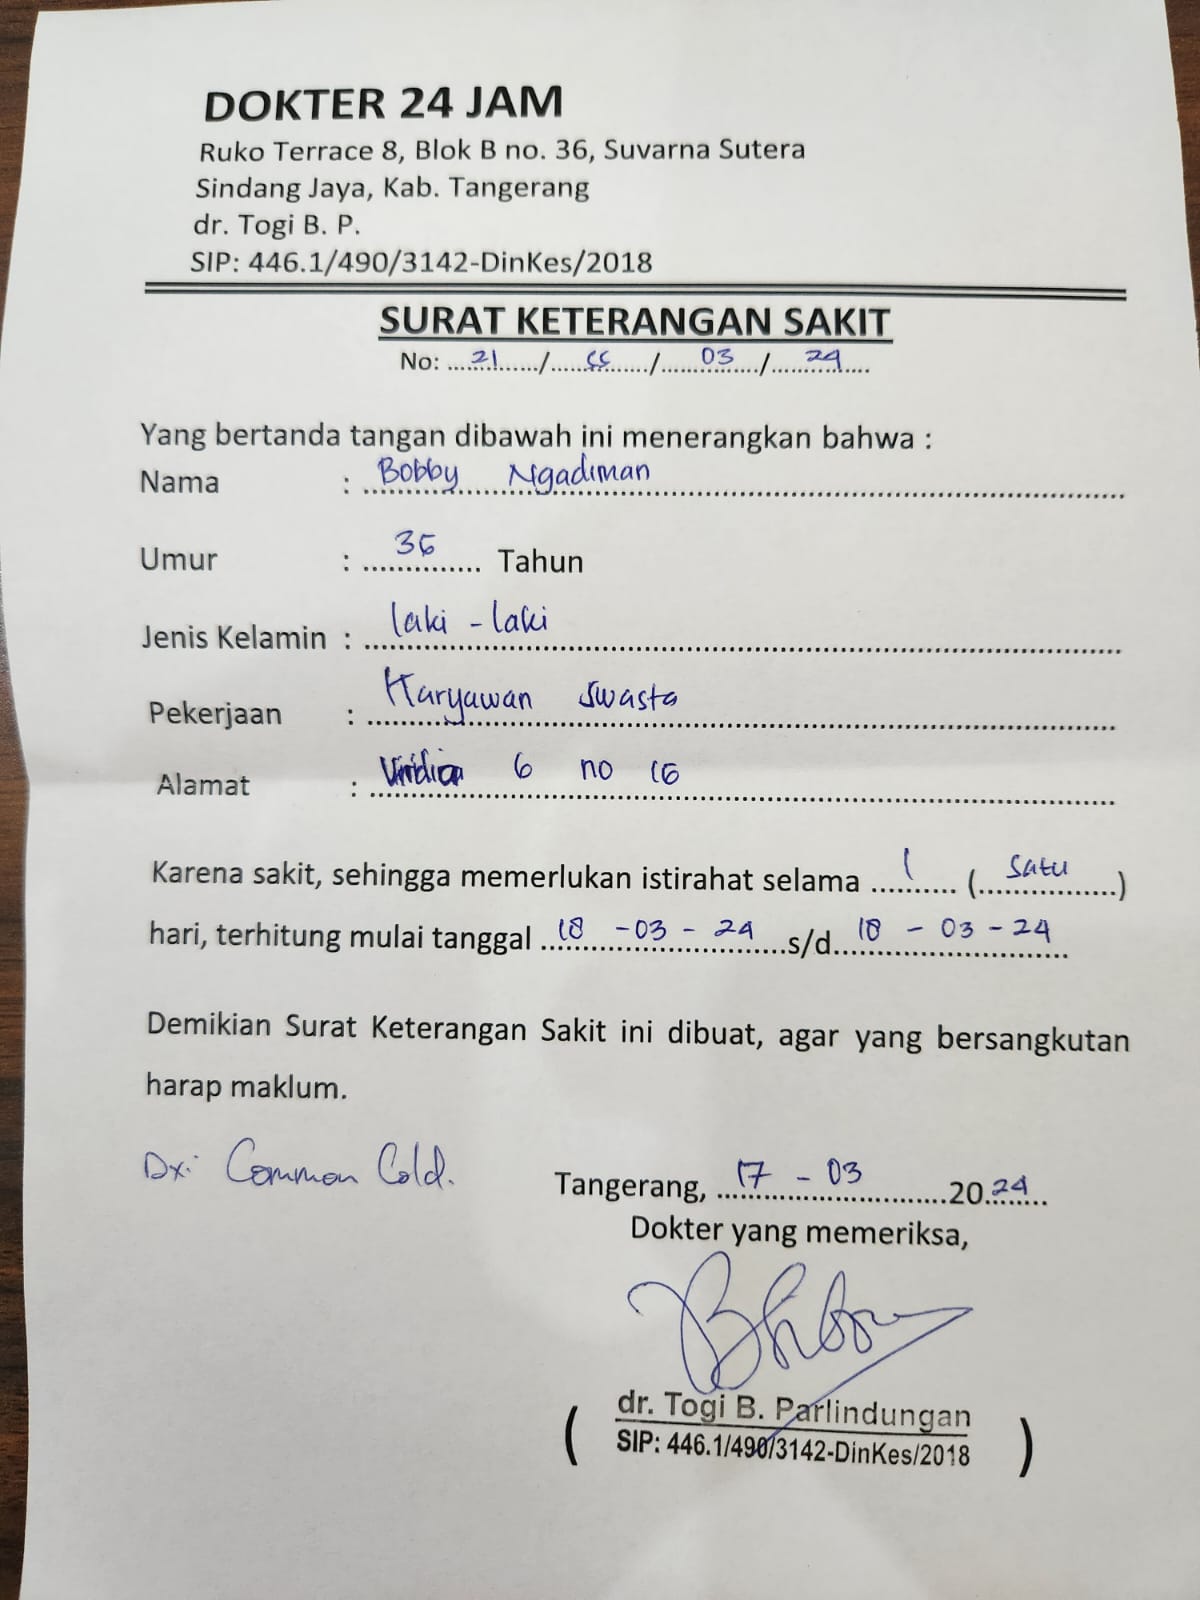 DOKTER 24 JAM
Ruko Terrace 8, Blok B no. 36, Suvarna Sutera
Sindang Jaya, Kab. Tangerang
dr. Togi B. P.
SIP: 446.1/490/3142-DinKes/2018
SURAT KETERANGAN SAKIT
No: 21 / SS / 03 / 24
Yang bertanda tangan dibawah ini menerangkan bahwa :
Nama : Bobby Ngadiman
Umur : 36 Tahun
Jenis Kelamin : laki - laki
Pekerjaan : Karyawan Swasta
Alamat : Viridia 6 no 16
Karena sakit, sehingga memerlukan istirahat selama 1 (Satu)
hari, terhitung mulai tanggal 18 - 03 - 24 s/d. 18 - 03 - 24
Demikian Surat Keterangan Sakit ini dibuat, agar yang bersangkutan
harap maklum.
Dx: Common Cold.
Tangerang, 17 - 03 2024
Dokter yang memeriksa,
( dr. Togi B. Parlindungan )
SIP: 446.1/490/3142-DinKes/2018